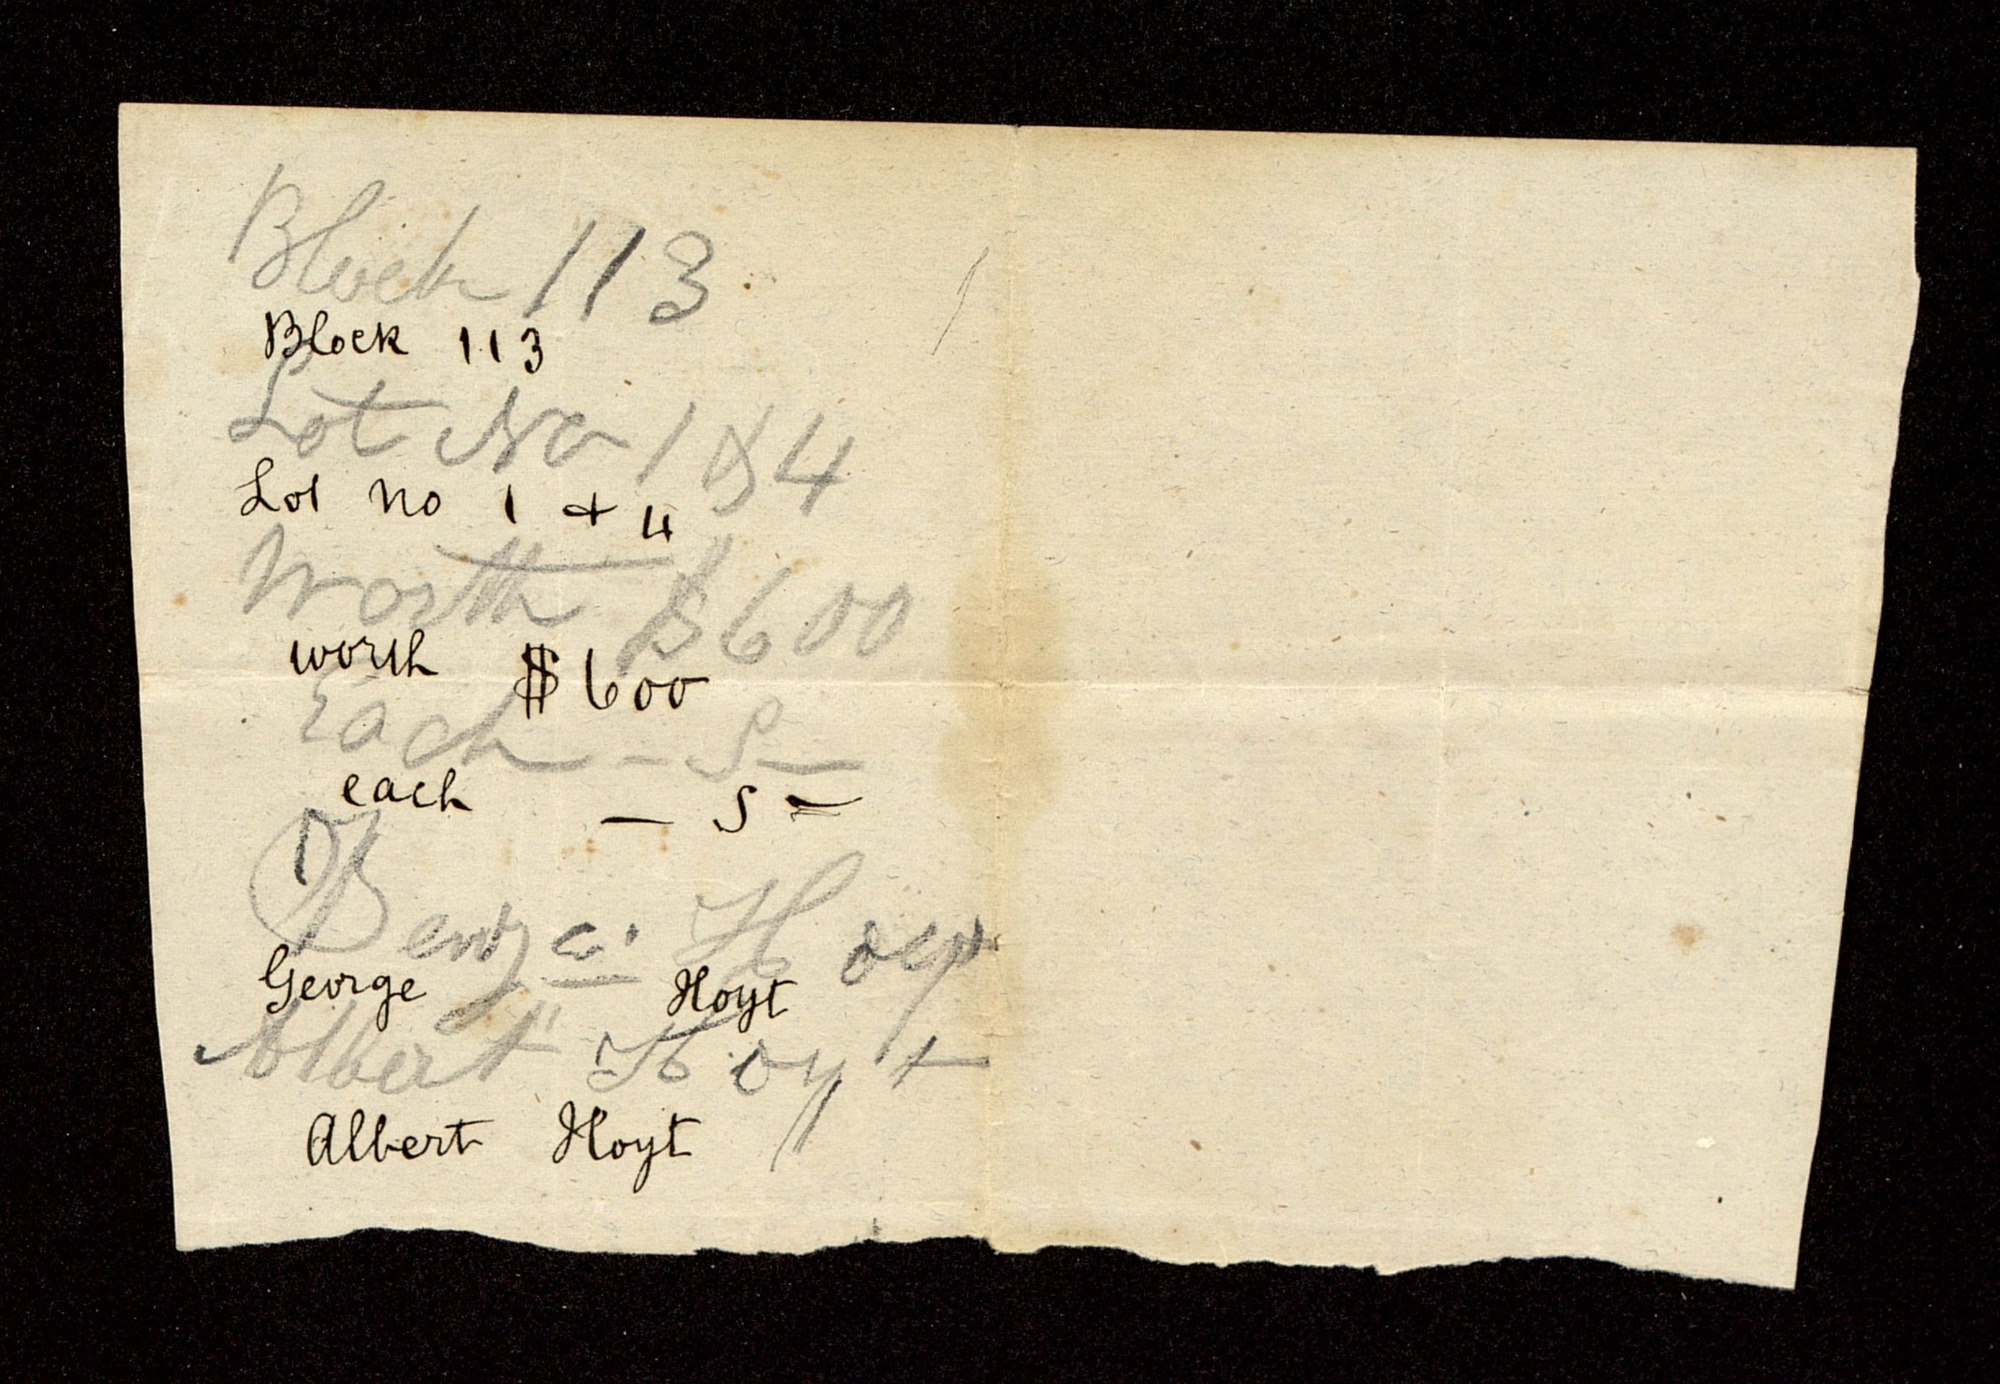 Block 113
Block 113
Lot No 1 & 4
Lot no 1 + 4
Worth $600
worth $600
Each — S —
each — S =
Hoyt
George Hoyt
Albert Hoyt
Albert Hoyt